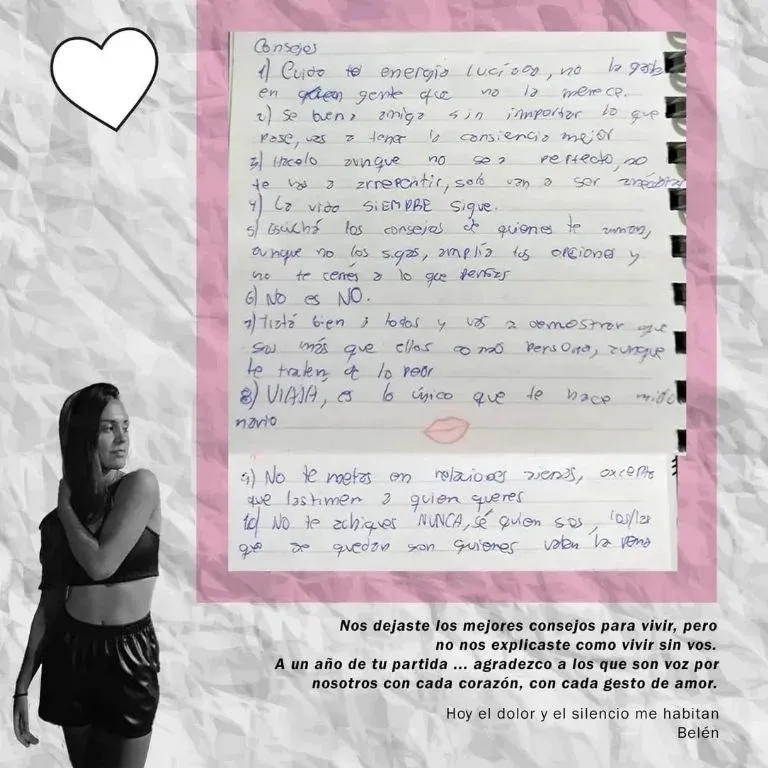 Consejos
1) Cuida tu energia luciooo, no la gast
en quien gente que no la merece.
2) Se buena amiga sin importar lo que
pase, vas a tener la consiencia mejor
3) Hacelo aunque no sea perfecto, no
te vas a arrepentir, solo van a ser
4) La vida SIEMPRE sigue.
5) Escuchá los consejos de quienes te aman,
aunque no los sigas, amplía tus opciones y
no te cerrés a lo que pensas
6) NO es NO.
7) Tratá bien a todos y vas a demostrar que
sos más que ellos como persona, aunque
te traten de lo peor
8) VIAJÁ, es lo único que te hace millo
nario
9) No te metas en relaciones ajenas, excepto
que lastimen a quien queres
10) NO te achiques NUNCA, sé quien sos, los/las
que se quedan son quienes valen la pena
Nos dejaste los mejores consejos para vivir, pero
no nos explicaste como vivir sin vos.
A un año de tu partida ... agradezco a los que son voz por
nosotros con cada corazón, con cada gesto de amor.
Hoy el dolor y el silencio me habitan
Belén